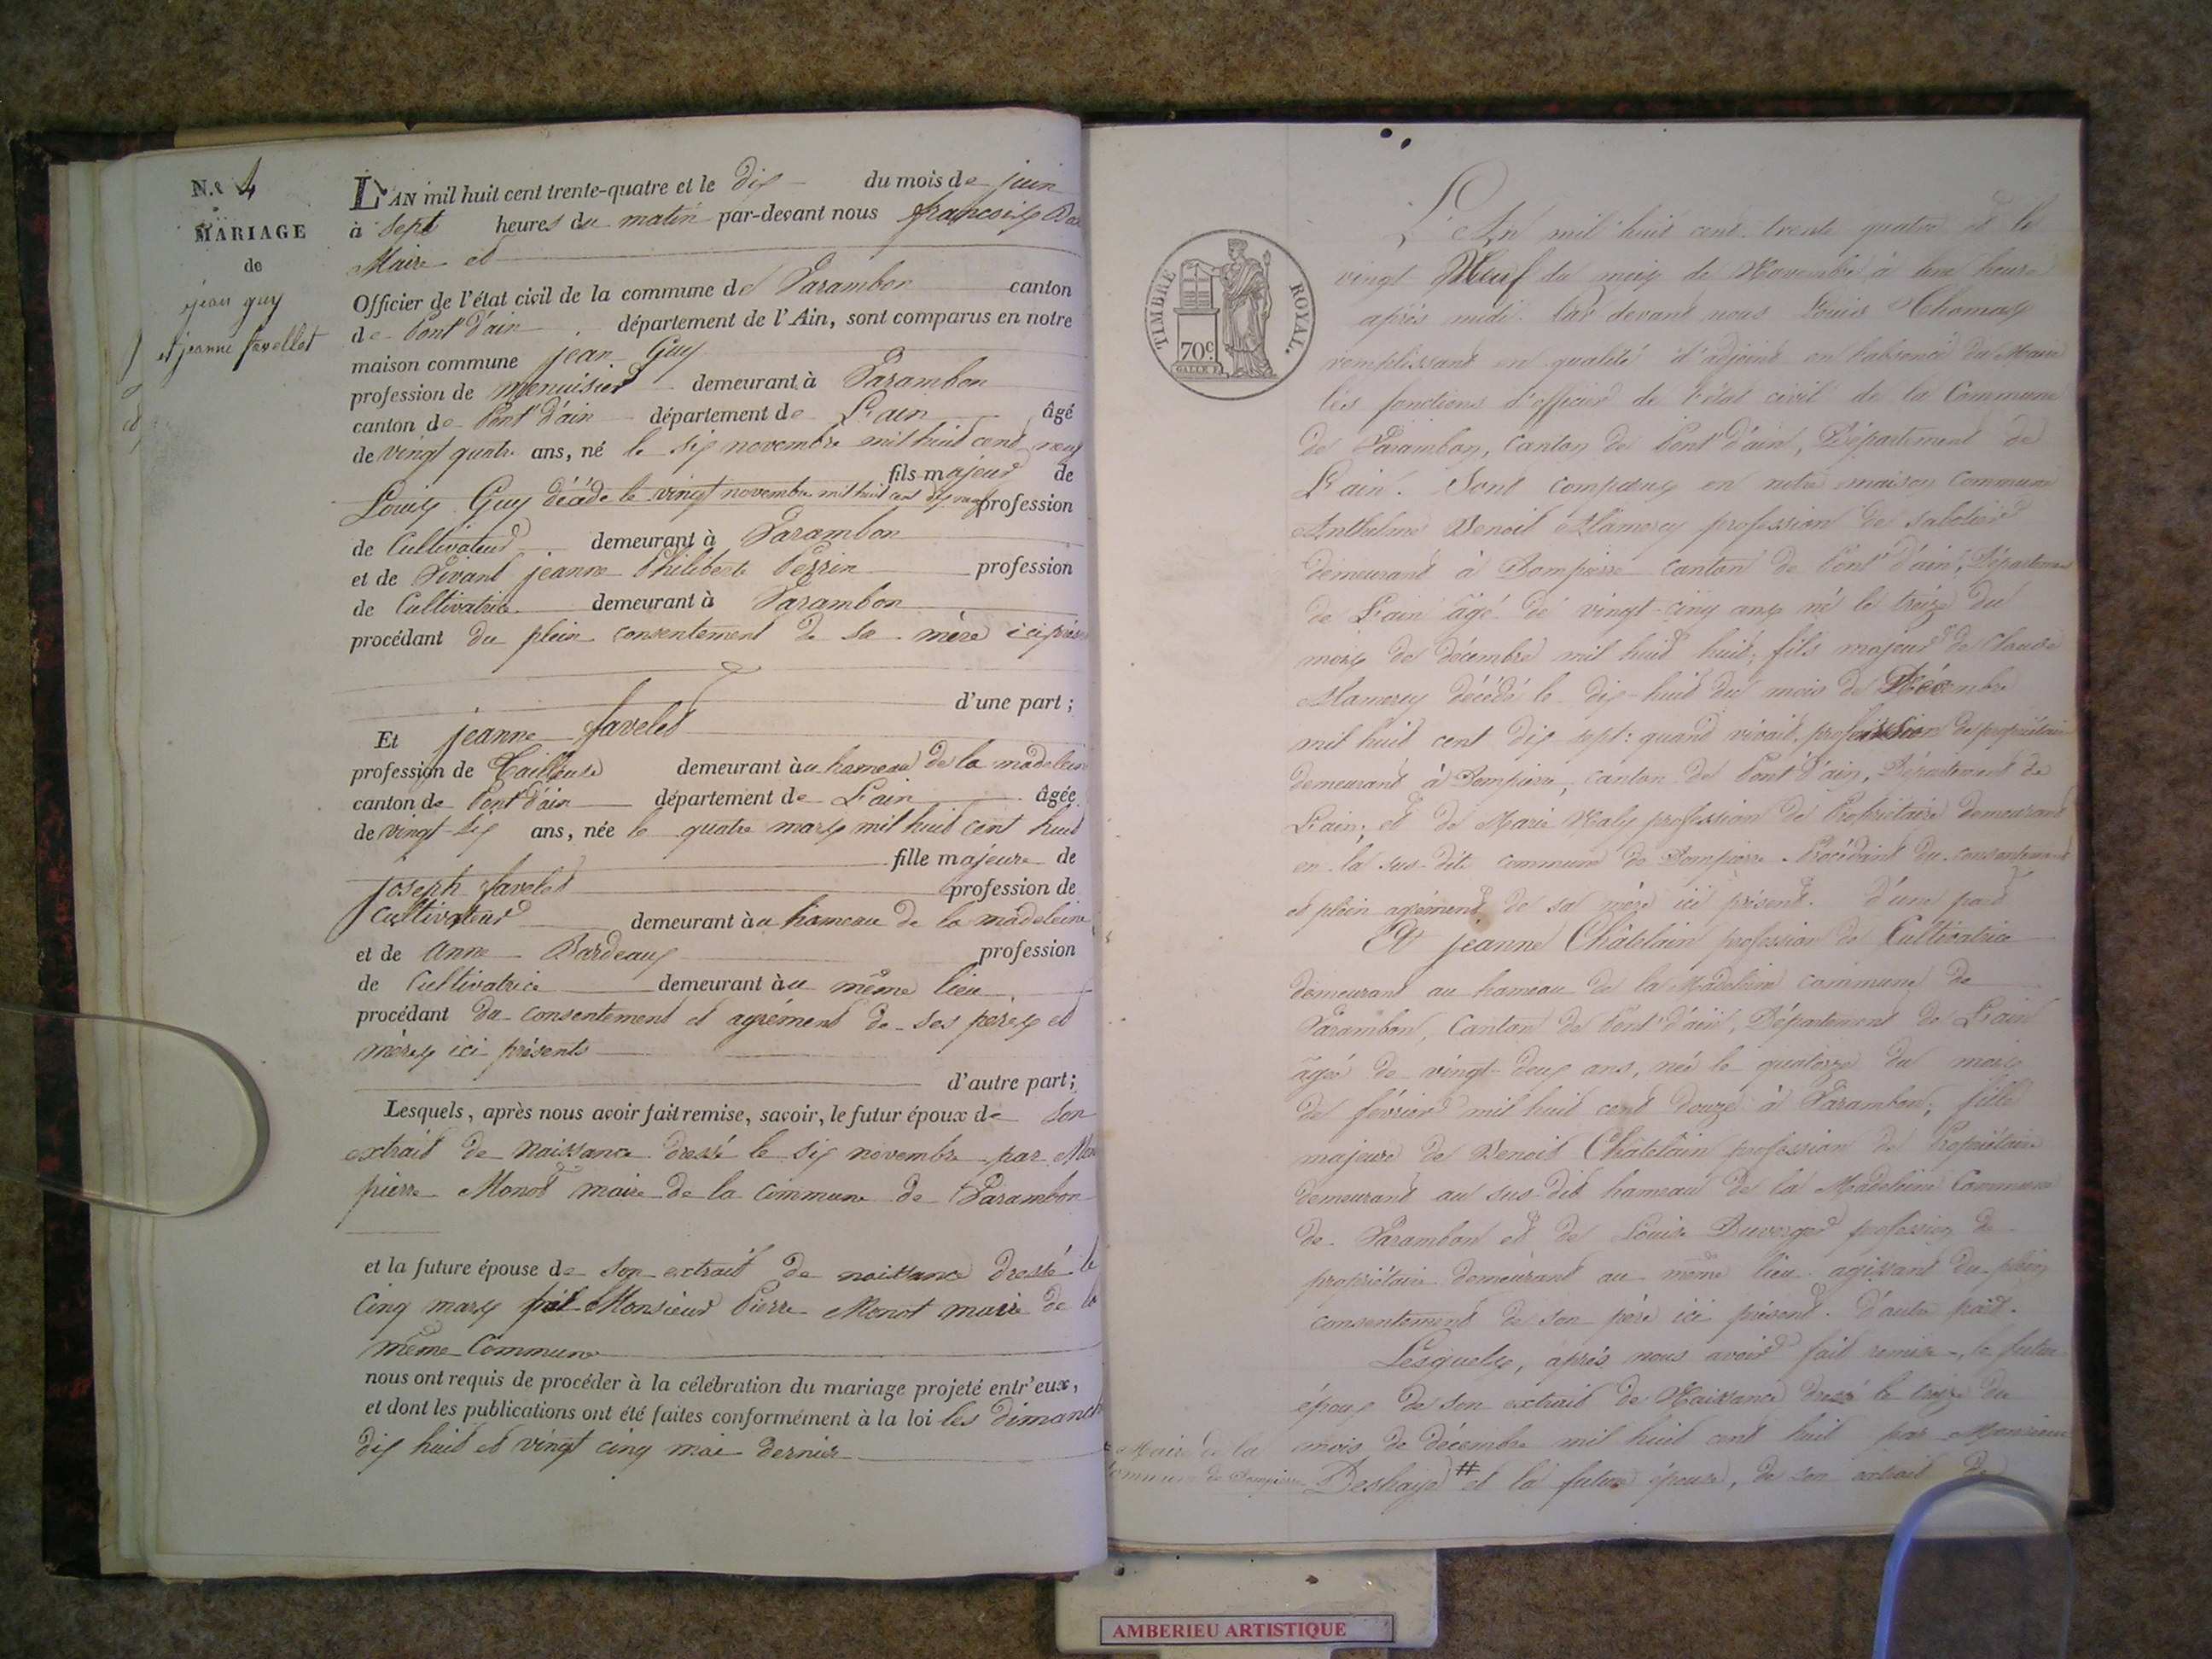 N.º 4
MARIAGE
de
jean guy
et jeanne favellet
L'AN mil huit cent trente-quatre et le dix du mois de juin
à sept heures du matin par-devant nous françois
Maire et
Officier de l'état civil de la commune de Varambon canton
de Pont d'ain département de l'Ain, sont comparus en notre
maison commune jean Guy
profession de menuisier demeurant à Varambon
canton de Pont d'ain département de L'ain âgé
de vingt quatre ans, né le six novembre mil huit cent neuf
fils majeur de
Louis Guy décédé le vingt novembre mil huit cent dix neuf profession
de Cultivateur demeurant à Varambon
et de Vivant jeanne Philiberte Perrin profession
de Cultivatrice demeurant à Varambon
procédant du plein consentement de sa mère ici présente
d'une part ;
Et jeanne favelet
profession de Tailleuse demeurant au hameau de la madeleine
canton de Pont d'ain département de L'ain âgée
de vingt-six ans, née le quatre mars mil huit cent huit
fille majeure de
joseph favelet profession de
Cultivateur demeurant au hameau de la madeleine
et de anne Bardeaux profession
de Cultivatrice demeurant au même lieu
procédant du consentement et agrément de ses peres et
mères ici présents
d'autre part ;
Lesquels, après nous avoir fait remise, savoir, le futur époux de son
extrait de naissance dressé le six novembre par
pierre Monot maire de la commune de Varambon
et la future épouse de son extrait de naissance dressé le
cinq mars par Monsieur Pierre Monot maire de la
même Commune
nous ont requis de procéder à la célébration du mariage projeté entr'eux,
et dont les publications ont été faites conformément à la loi les dimanch
dix huit et vingt cinq mai dernier
TIMBRE ROYAL.
70c
L'An mil huit cent trente quatre et le
vingt Neuf du mois de Novembre à une heure
après midi. Par devant nous Louis Thomas
remplissant en qualité d'adjoint en l'absence du Maire
les fonctions d'officier de l'état civil de la Commune
de Varambon, canton de Pont d'ain, Département de
L'ain. Sont comparus en notre maison commune
Anthelme Benoit Alamercy profession de sabotier
demeurant à Dompierre canton de Pont d'ain, Département
de L'ain âgé de vingt-cinq ans né le treize du
mois de décembre mil huit huit, fils majeur de Claude
Alamercy décédé le dix-huit du mois de Décembre
mil huit cent dix sept : quand vivait profession de propriétaire
demeurant à Dompierre, canton de Pont d'ain, Département de
L'ain, et de Marie profession de Propriétaire demeurant
en la sus-dite commune de Dompierre. Procédant du consentement
et plein agrément de sa mère ici présent. D'une part
Et jeanne Châtelain profession de Cultivatrice
demeurant au hameau de la Madeleine commune de
Varambon, Canton de Pont d'ain, Département de L'ain
âgée de vingt-deux ans, née le quatorze du mois
de février mil huit cent douze à Varambon, fille
majeure de Benoit Châtelain profession de Propriétaire
demeurant au sus-dit hameau de la Madeleine Commune
de Varambon et de Louise Duverger profession de
propriétaire demeurant au même lieu agissant du plein
consentement de son père ici présent. D'autre part.
Lesquels, après nous avoir fait remise, le futur
époux de son extrait de Naissance dressé le treize du
mois de décembre mil huit cent huit par Monsieur
Maire de la
commune de Dompierre
Deshaye # et la future épouse, de son extrait de
AMBERIEU ARTISTIQUE